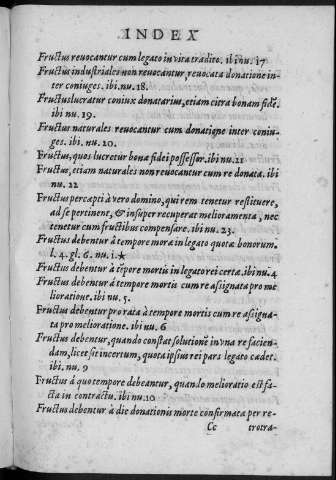 INDEX
Fructus reuocantur cum legato in vita tradito. ibi nu. 17
Fructus industriales non reuocantur, reuocata donatione in-
ter coniuges. ibi nu. 18.
Fructus lucratur coniux donatarius, etiam citra bonam fidē.
ibi nu. 19.
Fructus naturales reuocantur cum donatione inter coniu-
ges. ibi. nu. 20.
Fructus, quos lucretur bonæ fidei possessor. ibi nu. 21
Fructus, etiam naturales non reuocantur cum re donata. ibi
nu. 22
Fructus percapti à vero domino, qui rem tenetur restituere,
ad se pertinent, & insuper recuperat melioramenta, nec
tenetur cum fructibus compensare. ibi nu. 23.
Fructus debentur à tempore mora in legato quotæ bonorum.
l. 4. gl. 6. nu. 1.★
Fructus debentur à tēpore mortis in legato rei certa. ibi nu. 4
Fructus debentur à tempore mortis cum re assignata pro me
lioratione. ibi nu. 5.
Fructus debentur pro rata à tempore mortis cum re assigna-
ta pro melioratione. ibi nu. 6
Fructus debentur, quando constat solutionē in vna re facien-
dam, licet sit incertum, quota ipsius rei pars legato cadet.
ibi nu. 9
Fructus à quo tempore debeantur, quando melioratio est fa-
cta in contractu. ibi nu. 10
Fructus debentur à die donationis morte confirmata per re-
Cc trotra-